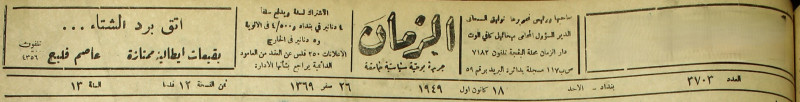 صاحبها ورئيس تحريرها توفيق السمعاني
المدير المسؤول المحامي ميخائيل تلفون البيت
دار الزمان محلة البقجة تلفون ٧١٨٣
ص.ب ١١٧ مسجلة بدائرة البريد برقم ٥٩
الزمان
جريدة يومية سياسية جامعة
الاشتراك لسنة ويدفع سلفاً
٤ دنانير في بغداد و ٤/٥٠٠ في الالوية
و ٥ دنانير في الخارج
الاعلانات ٢٥٠ فلس عن العقد من العامود
القائمية يراجع بشأنها الادارة
اتق برد الشتاء ...
بقبعات ايطالية ممتازة
تلفون
٤٣٥٦
عاصم فليح
العدد ٣٧٠٣
بغداد - الاحد ١٨ كانون اول ١٩٤٩
٢٦ صفر ١٣٦٩
ثمن النسخة ١٢ فلسا
السنة ١٣